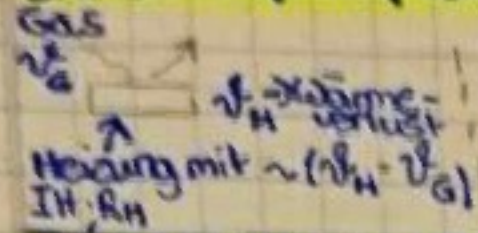 Gas
ϑG
ϑH → Wärme-
verlust
Heizung mit ~(ϑH - ϑG)
IH, RH